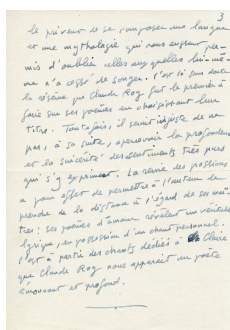 3
le prévenir de se composer une langue
et une mythologie qui nous eussent per-
mis d'oublier celles auxquelles lui-mê-
me n'a cessé de songer. C'est là sans doute
la réserve que Claude Roy fut le premier à
faire sur ses poèmes en choisissant leur
titre. Toutefois, il serait injuste de ne
pas, à sa suite, apercevoir la profondeur
et la sincérité des sentiments très purs
qui s'y expriment. La reprise des positions
a pour effet de permettre à l'auteur de
prendre de la distance à l'égard de ses maî-
tres : ses poèmes d'amour révèlent un véritable
lyrique, en possession d'un chant personnel.
C'est à partir des chants dédiés à Claire
que Claude Roy nous apparaît un poète
émouvant et profond.